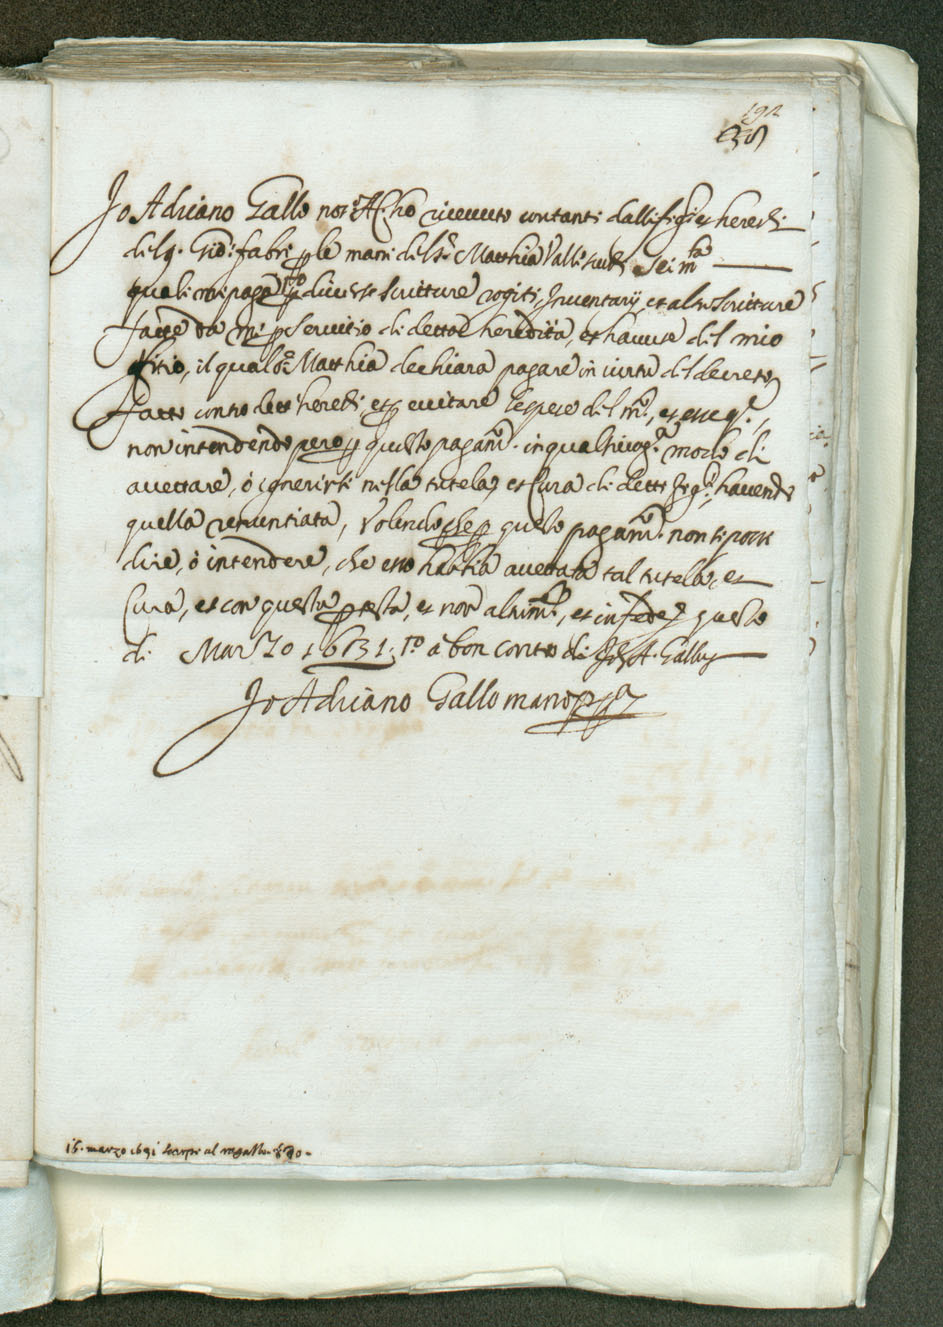 192
Jo Adriano Gallo not: A: C: ho riceuuto contanti dalli figi et heredi
del q. Gio: fabri p le mani del Sr Matthia Valli scudi sei mta
quali mi paga p diuerse scritture rogiti Inuentarij et altre scritture
fatte da mi p seruitio di detta heredità, et hauua del mio
offitio, il qual Sr Matthia dechiara pagare in uirtu del decreto
fatto contro detti heredi, et p euitare le spese del mto, et
non intendendo pero p questo pagamto in qualsiuogla modo di
accettare, ò ignerirsi nella tutela, et Cura di detti hauendo
quella renuntiata, Volendo che p questo pagamto non si possa
dire, ò intendere, che esso habbia accettata tal tutela, et
Cura, et con questa ptesta, et non altrimte, et in fede questo
di Marzo 1631. à bon conto di
Jo Adriano Gallo mano ppa
15. marzo 1631